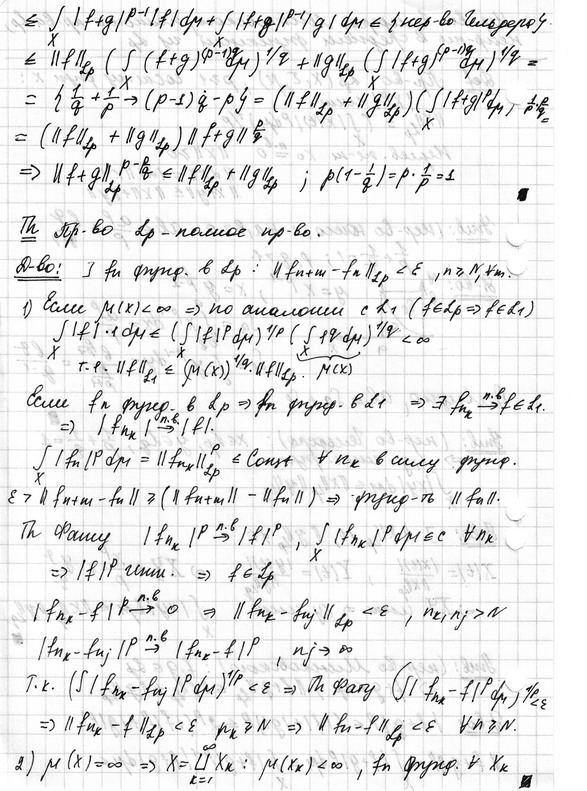 ≤ ∫_X |f+g|^{p-1} |f| dμ + ∫_X |f+g|^{p-1} |g| dμ ≤ {нер-во Гельдера}
≤ ‖f‖_{Lp} (∫_X (f+g)^{(p-1)q} dμ)^{1/q} + ‖g‖_{Lp} (∫_X |f+g|^{(p-1)q} dμ)^{1/q} =
= {1/q + 1/p → (p-1)q = p} = (‖f‖_{Lp} + ‖g‖_{Lp}) (∫_X |f+g|^p dμ)^{1/p · p/q} =
= (‖f‖_{Lp} + ‖g‖_{Lp}) ‖f+g‖^{p/q}
⇒ ‖f+g‖_{Lp}^{p - p/q} ≤ ‖f‖_{Lp} + ‖g‖_{Lp} ; p(1 - 1/q) = p · 1/p = 1
Th Пр-во Lp - полное пр-во.
Д-во: ∃ fn фунд. в Lp : ‖fn+m - fn‖_{Lp} < ε, n ≥ N, ∀m.
1) Если μ(x) < ∞ ⇒ по аналогии с L1 (f ∈ Lp ⇒ f ∈ L1)
∫_X |f| · 1 dμ ≤ (∫_X |f|^p dμ)^{1/p} (∫_X 1^q dμ)^{1/q} < ∞
т.е. ‖f‖_{L1} ≤ (μ(x))^{1/q} · ‖f‖_{Lp} μ(x)
Если fn фунд. в Lp ⇒ fn фунд. в L1 ⇒ ∃ f_{nk} →^{п.в.} f ∈ L1.
⇒ |f_{nk}| →^{п.в.} |f|.
∫_X |fn|^p dμ = ‖f_{nk}‖_{Lp}^p ≤ Const ∀ nk в силу фунд.
ε > ‖fn+m - fn‖ ≥ (‖fn+m‖ - ‖fn‖) ⇒ фунд-ть ‖fn‖.
Th Фату |f_{nk}|^p →^{п.в} |f|^p, ∫_X |f_{nk}|^p dμ ≤ c ∀ nk
⇒ |f|^p инт. ⇒ f ∈ Lp
|f_{nk} - f|^p →^{п.в} 0 ⇒ ‖f_{nk} - f_{nj}‖_{Lp} < ε, nk, nj > N
|f_{nk} - f_{nj}|^p →^{п.в} |f_{nk} - f|^p, nj → ∞
Т.к. (∫ |f_{nk} - f_{nj}|^p dμ)^{1/p} < ε ⇒ Th Фату (∫ |f_{nk} - f|^p dμ)^{1/p} < ε
⇒ ‖f_{nk} - f‖_{Lp} < ε nk ≥ N ⇒ ‖fn - f‖_{Lp} < ε ∀ n ≥ N.
2) μ(X) = ∞ ⇒ X = ∐_{k=1}^∞ Xk : μ(Xk) < ∞, fn фунд. ∀ Xk